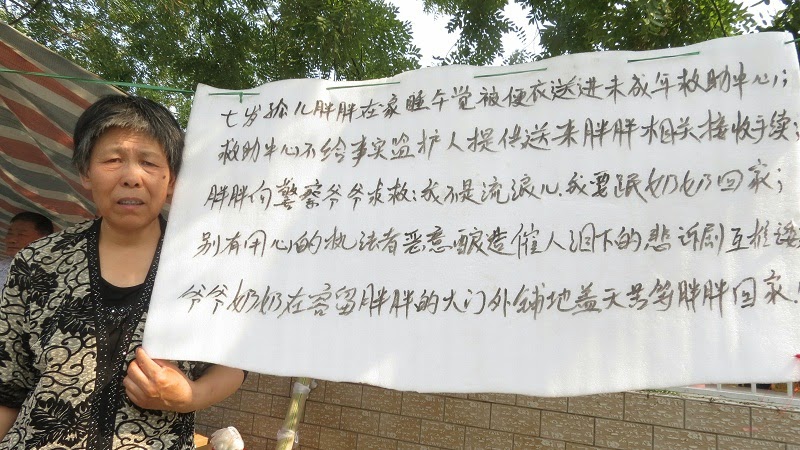 七岁孙儿胖胖在家睡午觉被便衣送进未成年救助中心;
救助中心不给事实监护人提供送来胖胖相关接收手续;
胖胖向警察爷爷求救:我不是流浪儿.我要跟奶奶回家;
别有用心的执法者恶意酿造催人泪下的悲诉剧互推诿
爷爷奶奶在容留胖胖的大门外铺地盖天苦等胖胖回家!